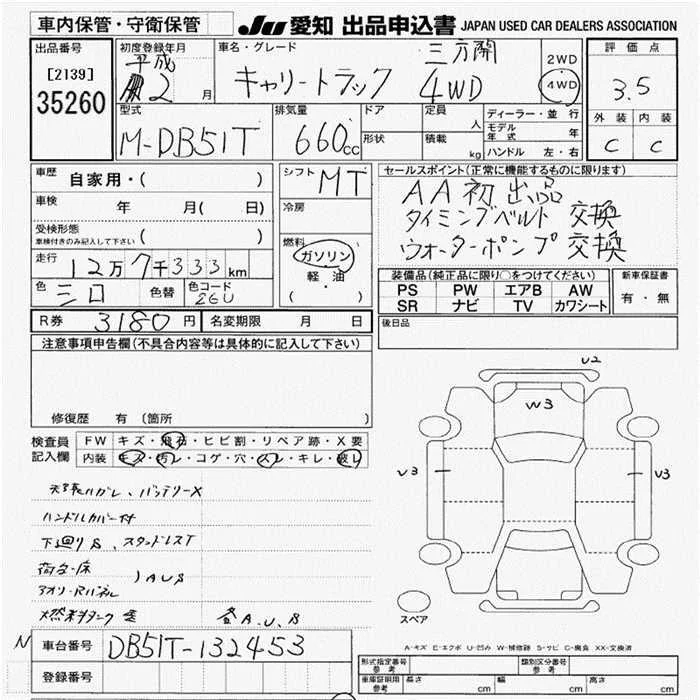 車内保管・守衛保管
JU 愛知 出品申込書 JAPAN USED CAR DEALERS ASSOCIATION
出品番号
[2139]
35260
初度登録年月
平成
2 月
車名・グレード
三方開
キャリートラック 4WD
2WD
4WD
評価点
3.5
外装 内装
C C
型式
M-DB51T
排気量
660cc
ドア
形状
定員
人
積載
kg
ディーラー・並行
モデル年式 年
ハンドル 左・右
車歴
自家用・( )
車検
年 月( 日)
受検形態
車検付きのみ記入して下さい ( )
走行
12万7千333km
色
三口
色替
色コード
26U
シフト
MT
冷房
燃料
ガソリン
軽・油
( )
セールスポイント(正常に機能するものに限ります)
AA初出品
タイミングベルト 交換
ウォーターポンプ 交換
装備品(純正品に限り○をつけてください)
PS PW エアB AW
SR ナビ TV カワシート
新車保証書
有・無
R券 3180円 名変期限 月 日
後日品
注意事項申告欄(不具合内容等は具体的に記入して下さい)
修復歴 有 (箇所 )
検査員記入欄
FW キズ・飛石・ヒビ割・リペア跡・X要
内装 キズ・汚レ・コゲ・穴・スレ・キレ・破レ
天張ハガレ、バッテリーX
ハンドルカバー付
下廻りS、スタンドレスT
荷台床
アオリ・パネル
)AUS
燃料タンク
各A.U.S
U2
W3
U3
U3
スペア
A-キズ E-エクボ U-凹み W-補修跡 S-サビ C-腐食 XX-交換済
N
車台番号 DB51T-132453
登録番号
型式指定番号
参考
類別区分番号
参考
車庫証明用
参考
長さ cm 幅 cm 高さ cm